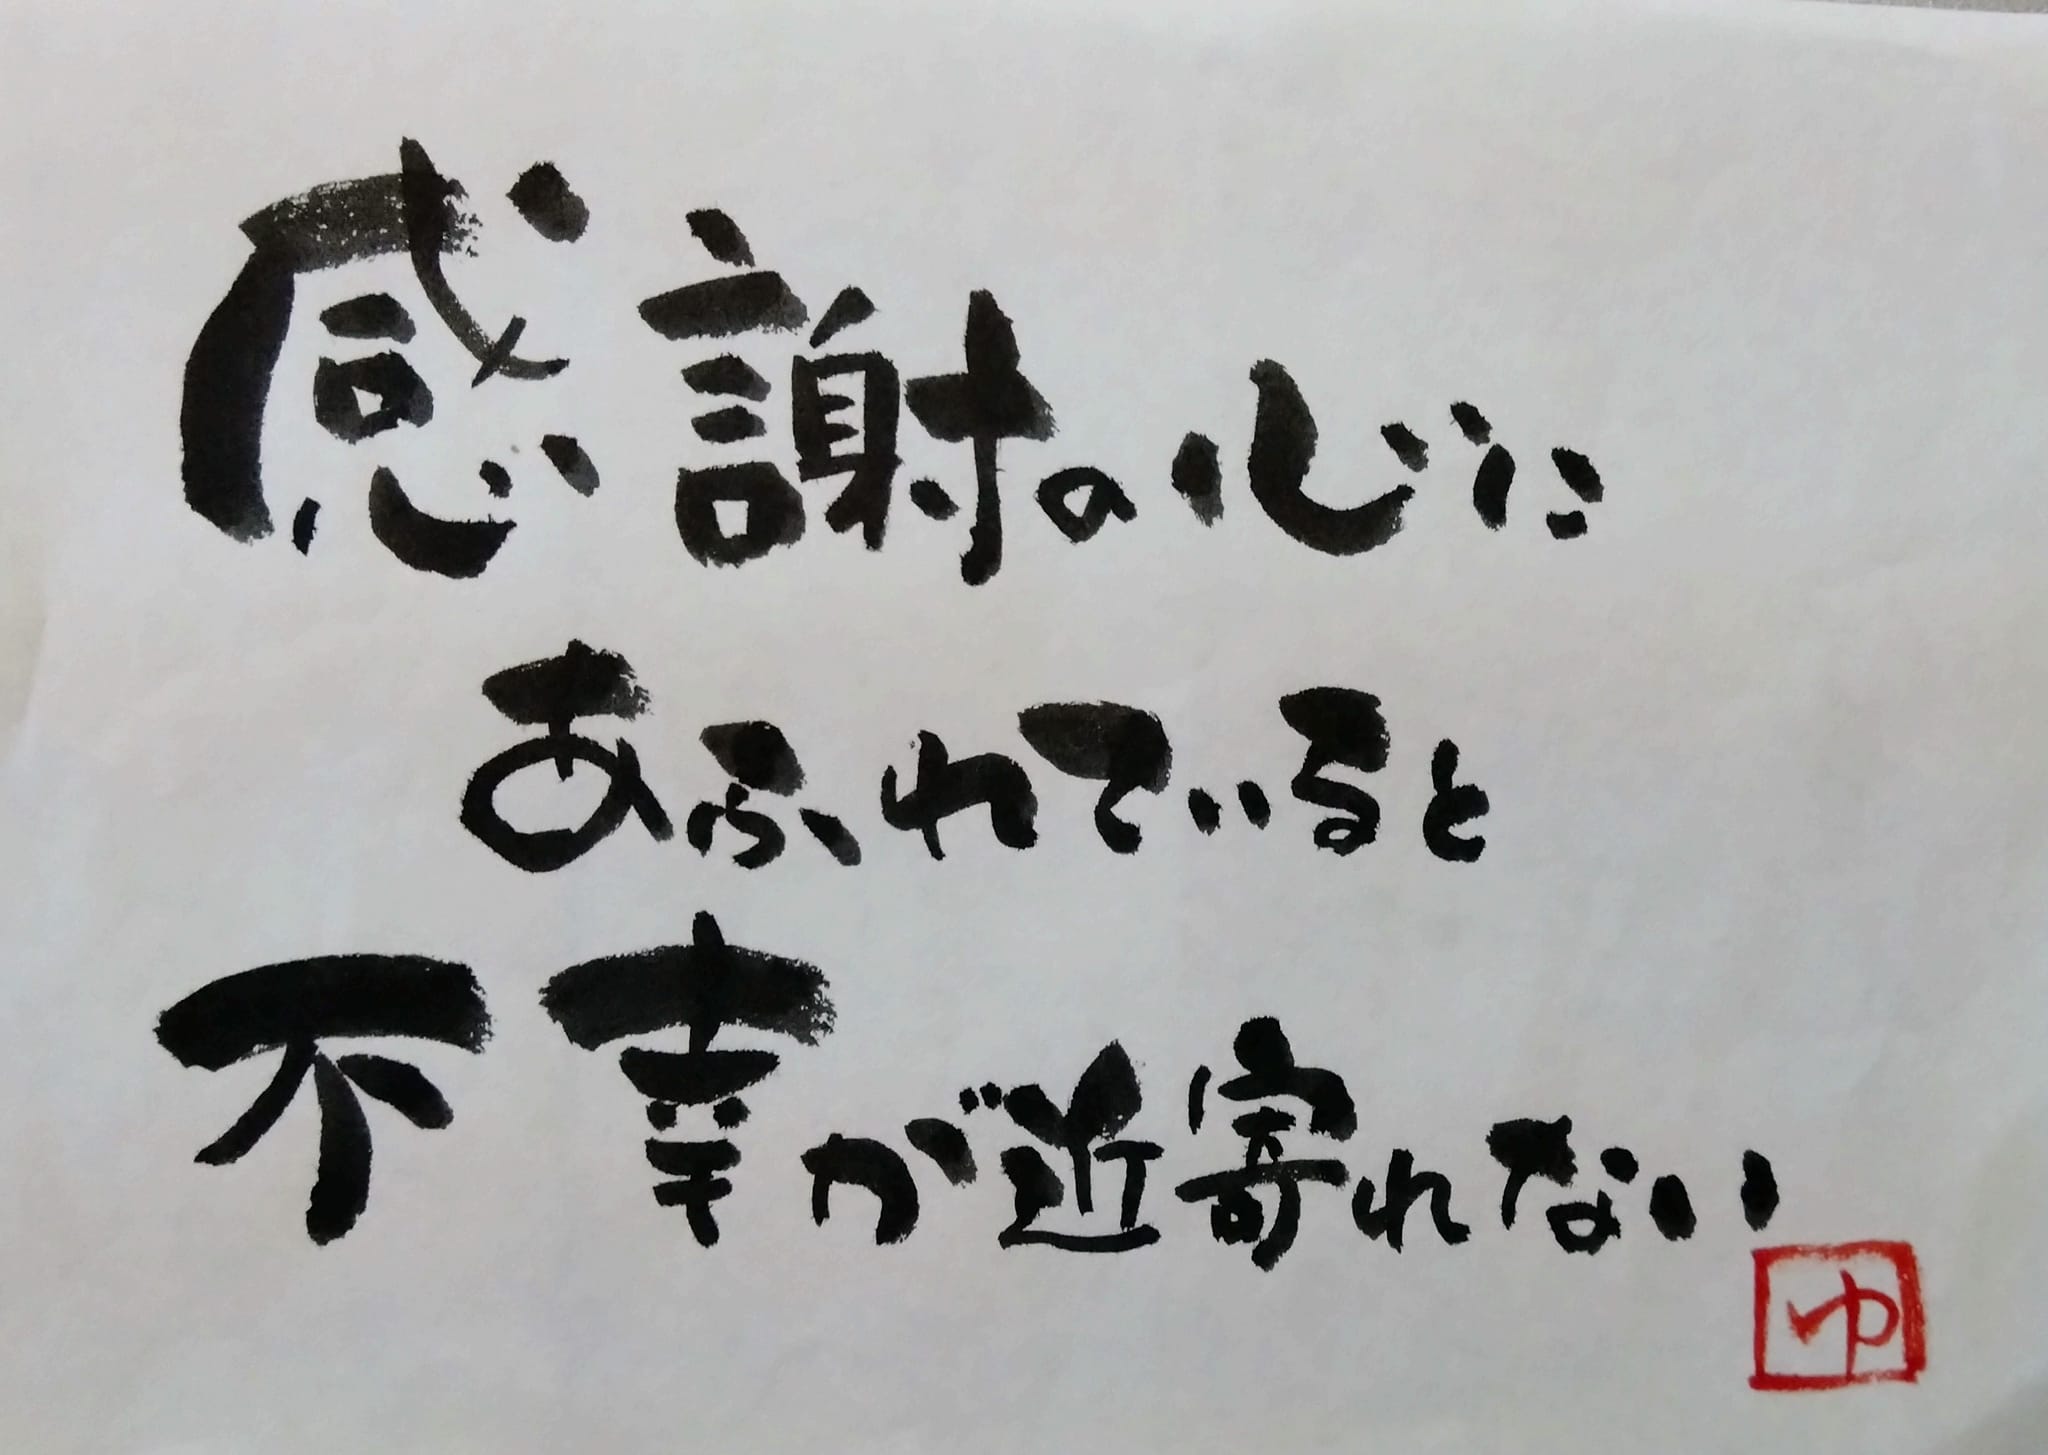 感謝の心に
あふれていると
不幸が近寄れない
ゆ